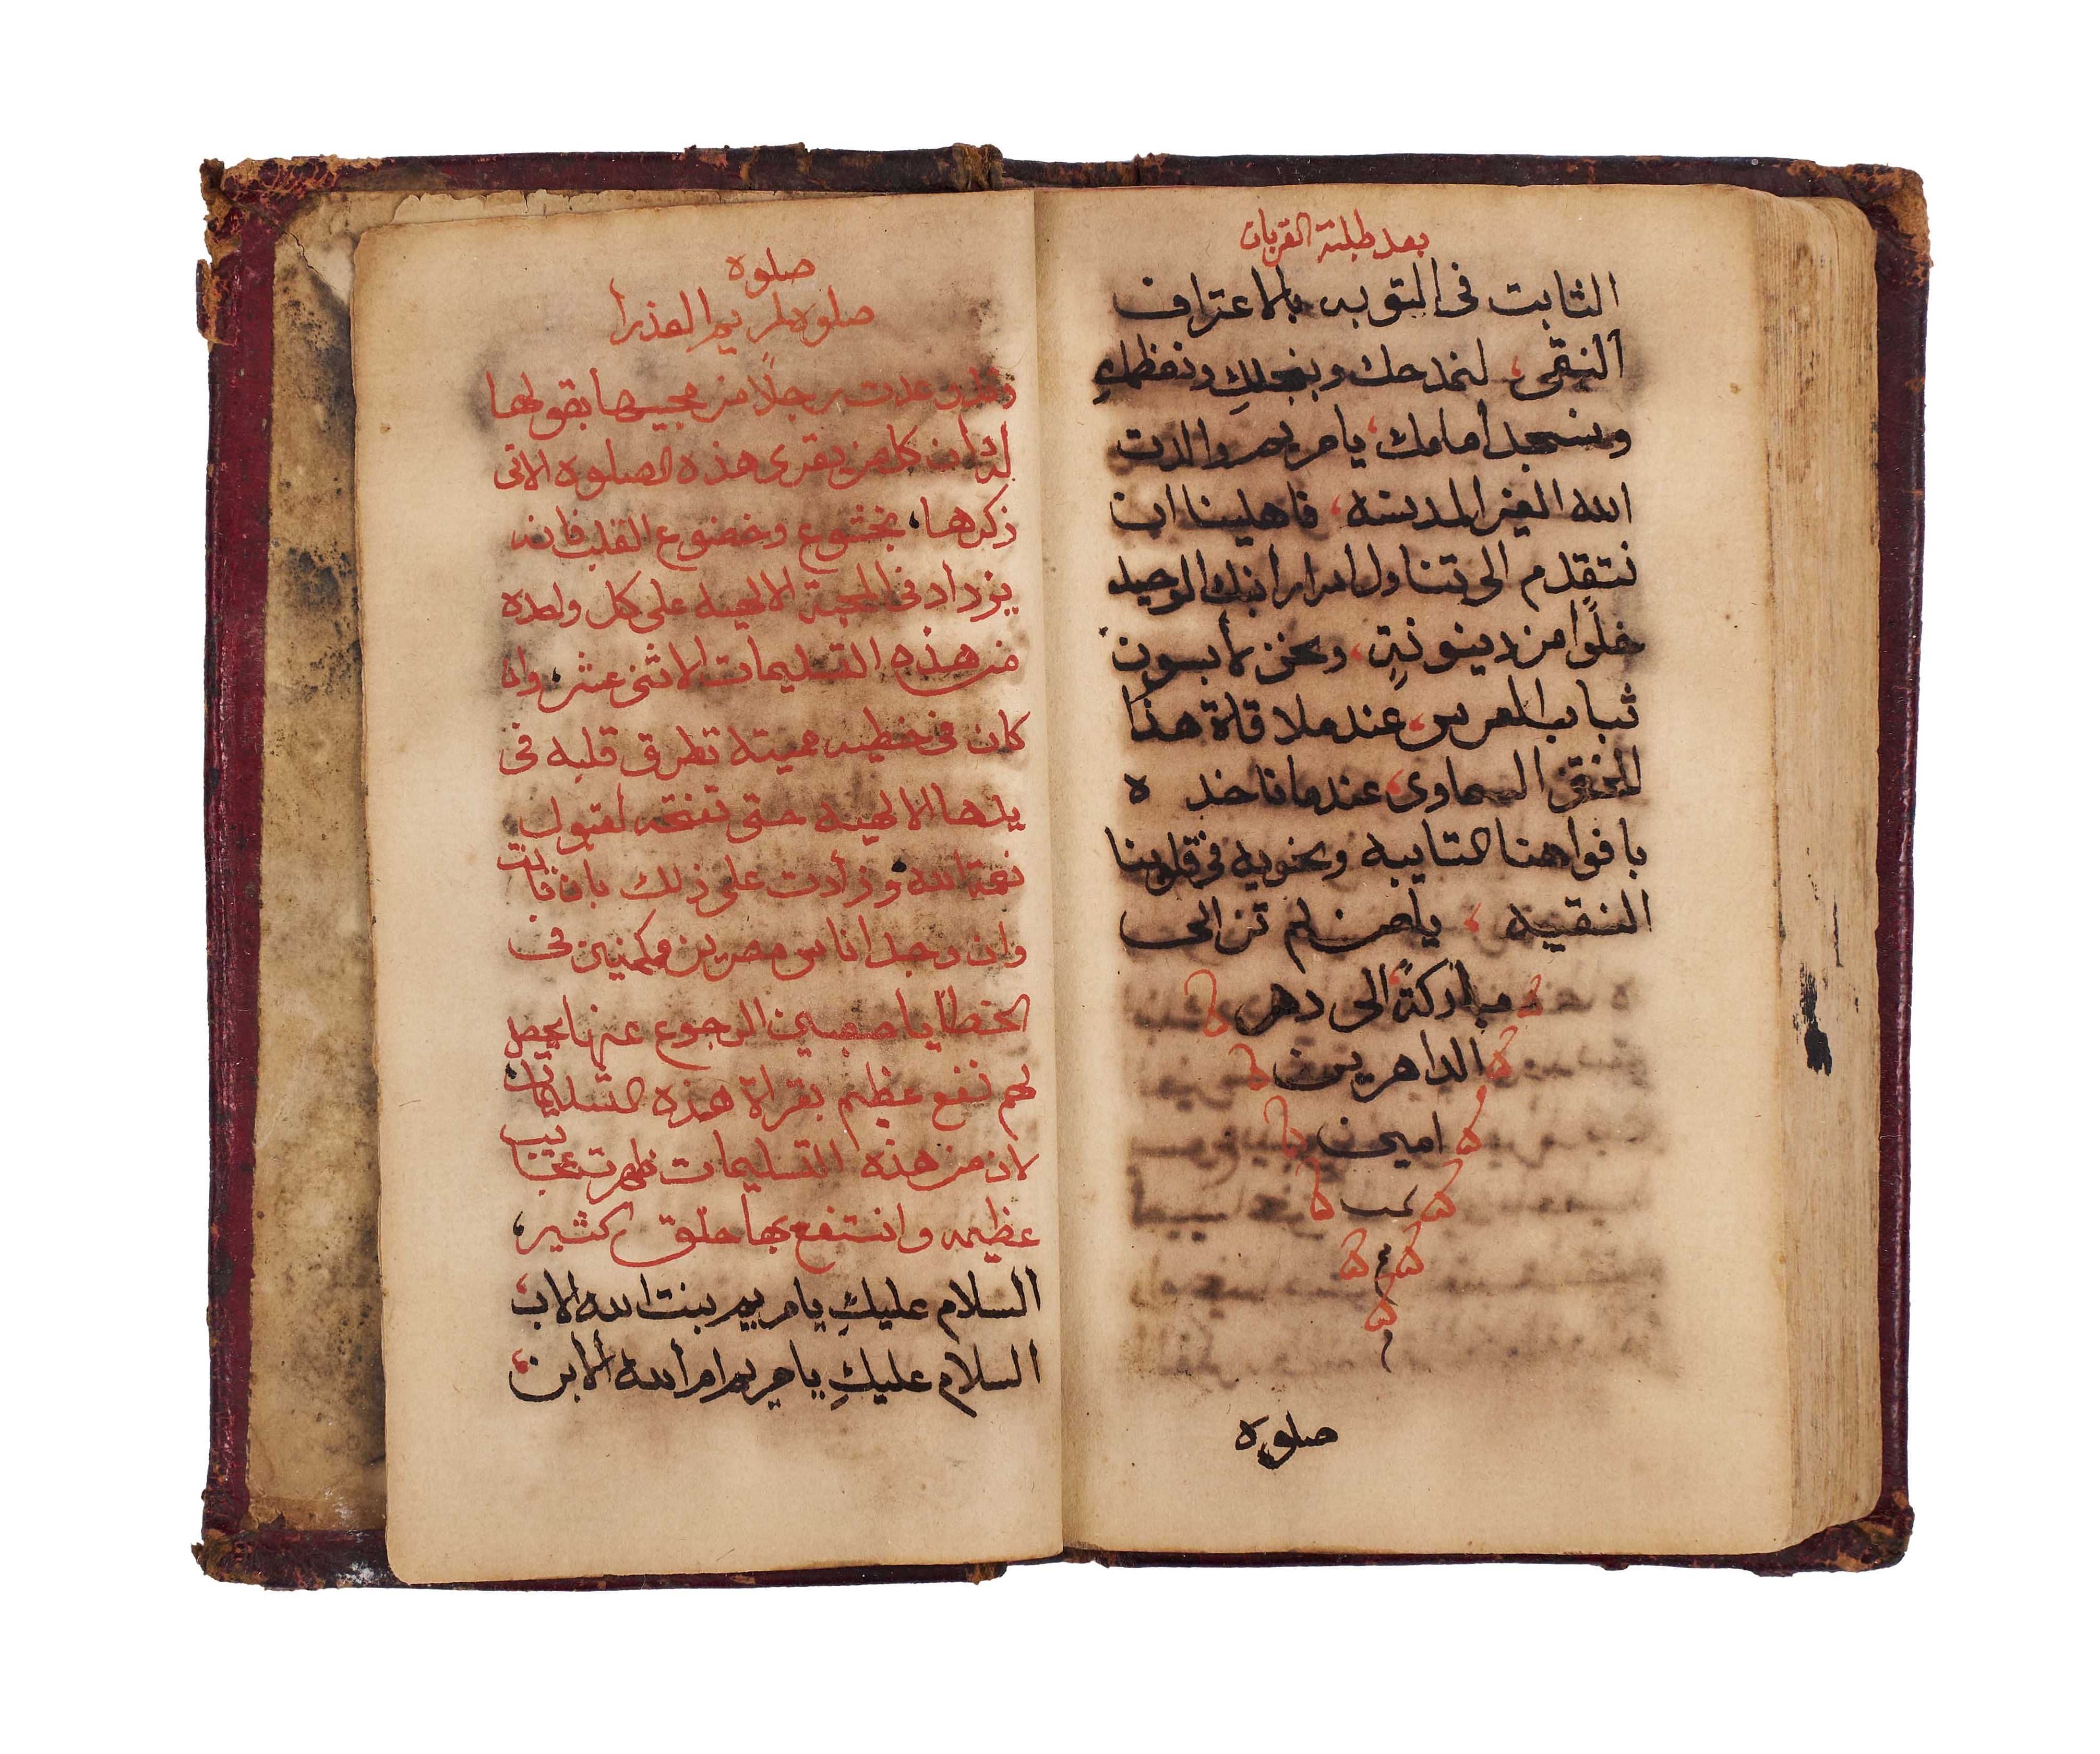 بعد طلبة القربان
الثابت فى التوبه بالاعتراف
النقى، لنمدحك وبنجلكِ ونعظمكِ
ونسجد أمامك، يا مريم والدت
الله الغير المدنسه، فاهلينا ان
نتقدم الى تناول اسرار ابنك الوحيد
خلوًا من دينونةٍ، ونحن لابسون
ثياب العرس، عند ملاقاة هذا
الختن السماوى، عندما ناخذ ه
بافواهنا التايبه ونحويه فى قلوبنا
النقيه، يا من لم تزالى
مباركةً، الى دهر
الداهرين
امين
صلوة
صلوه
صلوه لمريم العذرا
رجلًا من محبيها بقولها
له ان كل من يقرى هذه الصلوه الاتى
ذكرها، بخشوع وخضوع القلب فانه
يزداد فى المحبة الالهيه على كل واحده
من هذه التسليمات الاثنى عشر، وان
كان فى خطيه مميته تطرق قلبه فى
يدها الالهيه حتى تفتحه لقبول
نعمة الله، وزادت على ذلك بان قالت
وان وجد اناس مصرين ممكنين فى
الخطايا صعبين الرجوع عنها يحصل
لهم نفع عظيم بقراة هذه التسليمات
لان من هذه التسليمات ظهرت عجايب
عظيمه وانتفع بها خلق كثير،
السلام عليكِ يا مريم بنت الله الاب،
السلام عليكِ يا مريم ام الله الابن،